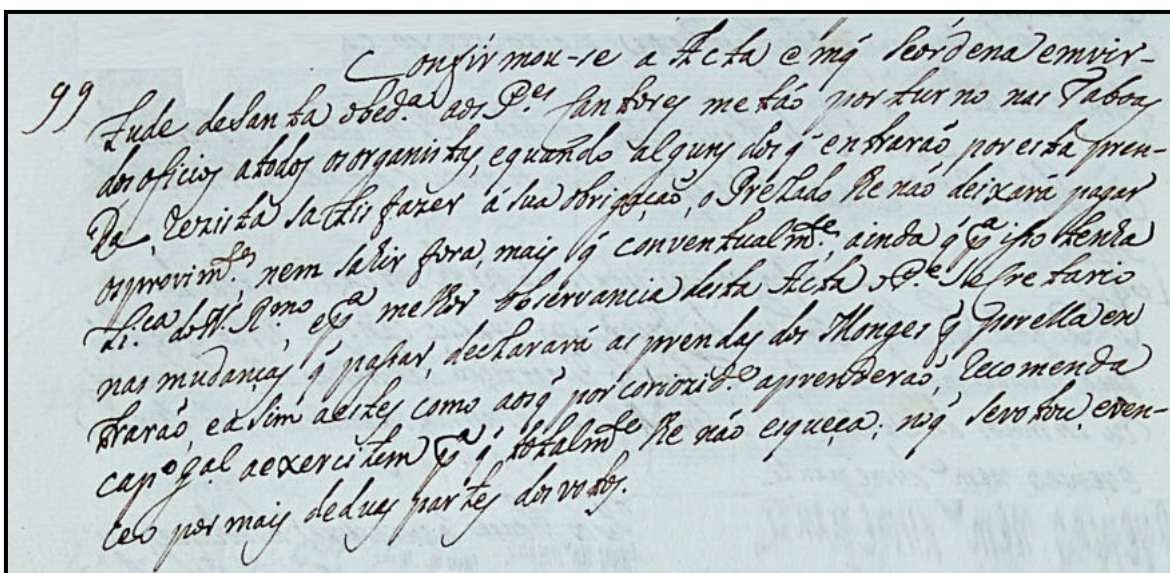 Confirmou-se a Acta emq̃ seordena emvir-
99 tude desanta obed.ª aos P.es Cantores metaõ por turno nas Taboas
dos oficios atodos osorganistas, equando alguns dos q̃ entraraõ, por esta pren-
da, rezistaõ satisfazer á sua obrigaçaõ, o Prelado lhe naõ deixará pagar
osprovim.tos, nem sahir fora, mais q̃ conventualm.te, ainda q̃ p.ª isso tenha
Li.ca doN. R.mo, ep.ª melhor observancia desta Acta o P.e Secretario
nas mudanças q̃ pasar, declarará as prendas dos Monges q̃ por ella en
traraõ, easim aestes como aosq̃ por coriozid.e aprenderaõ, recomenda
cap.º g.al aexercitem p.ª q̃ totalm.te lhe naõ esqueça; noq̃ sevotou, even-
ceo por mais deduas partes dos votos.